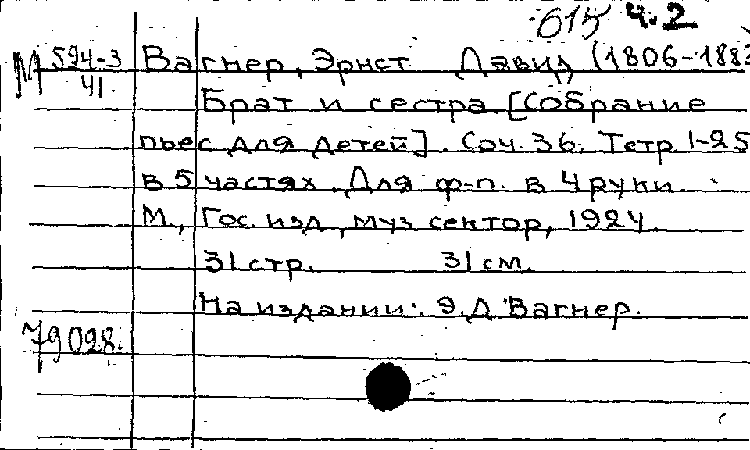 615 ч.2
М 594-3/41 Вагнер, Эрнст Давид (1806-1883
Брат и сестра [Собрание
пьес для детей]. Соч. 36. Тетр. 1-25
в 5 частях. Для ф-п. в 4 руки.
М., Гос. изд., муз сектор, 1924.
31 стр. 31 см.
На издании: Э.Д. Вагнер.
79028.